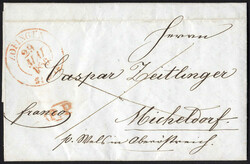 SOLINGEN
Herrn
Caspar Zeitlinger
franco
Micheldorf
p. Wels in Oberöstreich.